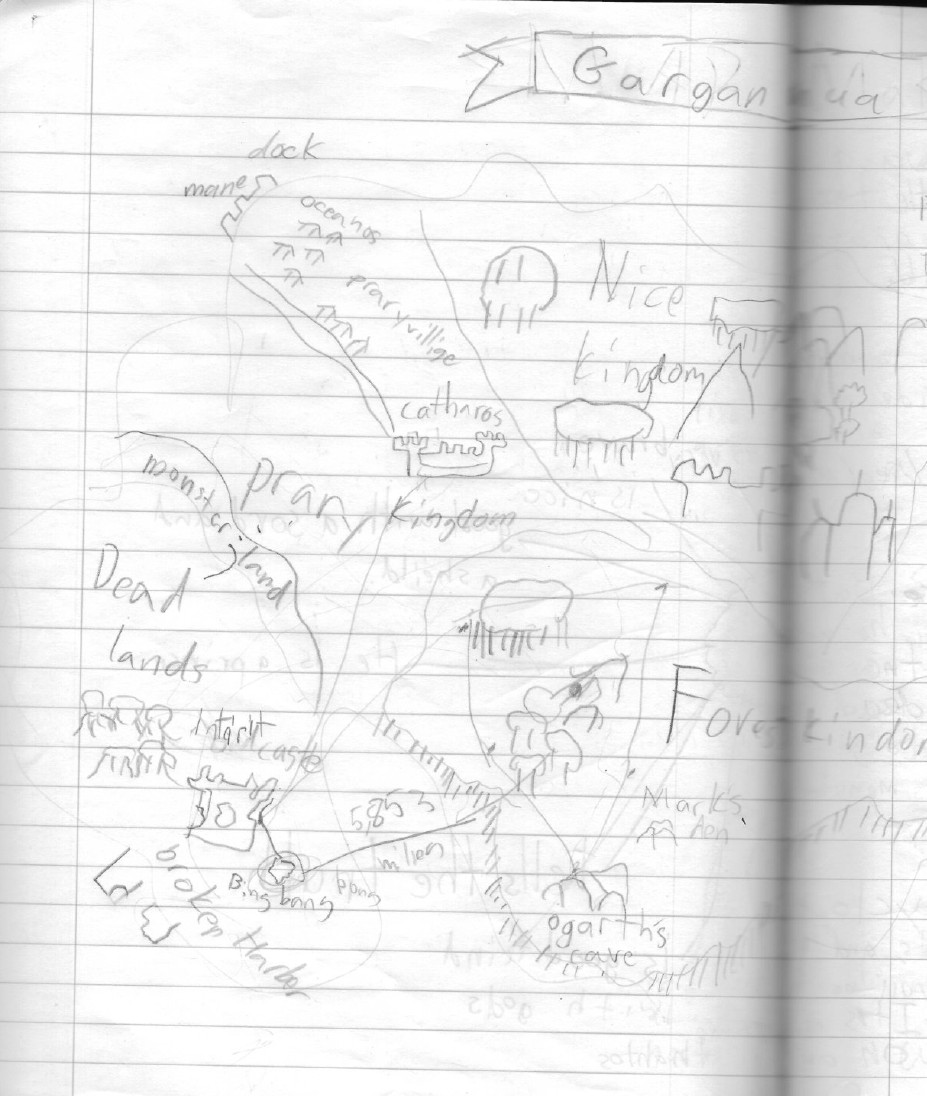 Gargan ua
dock
mane
oceanos
prary villige
Nice
kingdom
catharos
pran
kingdom
monster land
Dead
lands
castle
Fores kindom
Mark's
den
5,853
milion
Bing bang
broken Harbor
ogarth's
cave